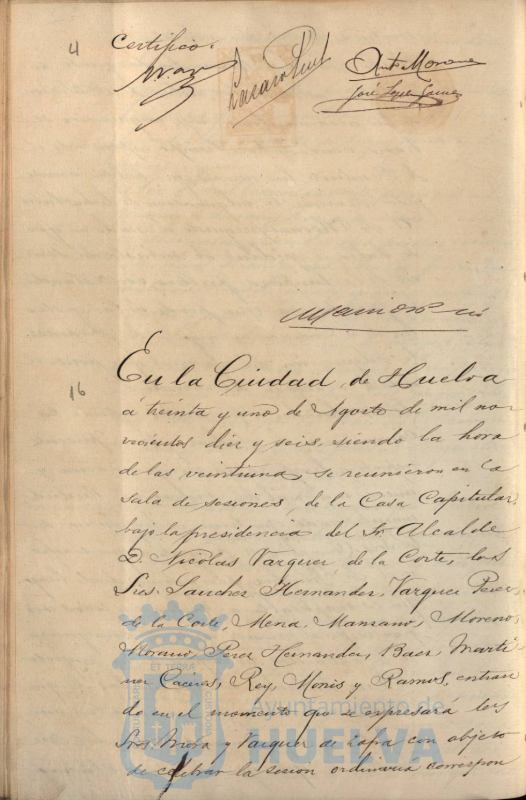 4
Certifico.
Ant. Moreno
José López Gómez
16
En la Ciudad, de Huelva
á treinta y uno de Agosto de mil no-
vecientos diez y seis, siendo la hora
de las veintiuna, se reunieron en la
sala de sesiones, de la Casa Capitular,
bajo la presidencia del Sr. Alcalde
D. Nicolas Vazquez, de la Corte, los
Sres. Sanchez Hernandez, Vazquez Perez,
de la Corte, Mena, Manzano, Moreno,
Morano, Perez Hernandez, Baez, Marti-
nez Caceres, Rey, Monis y Ramos, entran
do en el momento que se expresará los
Sres. Mora y Vazquez de Zafra con objeto
de celebrar la sesion ordinaria correspon
ET TERRÆ
Ayuntamiento de
HUELVA